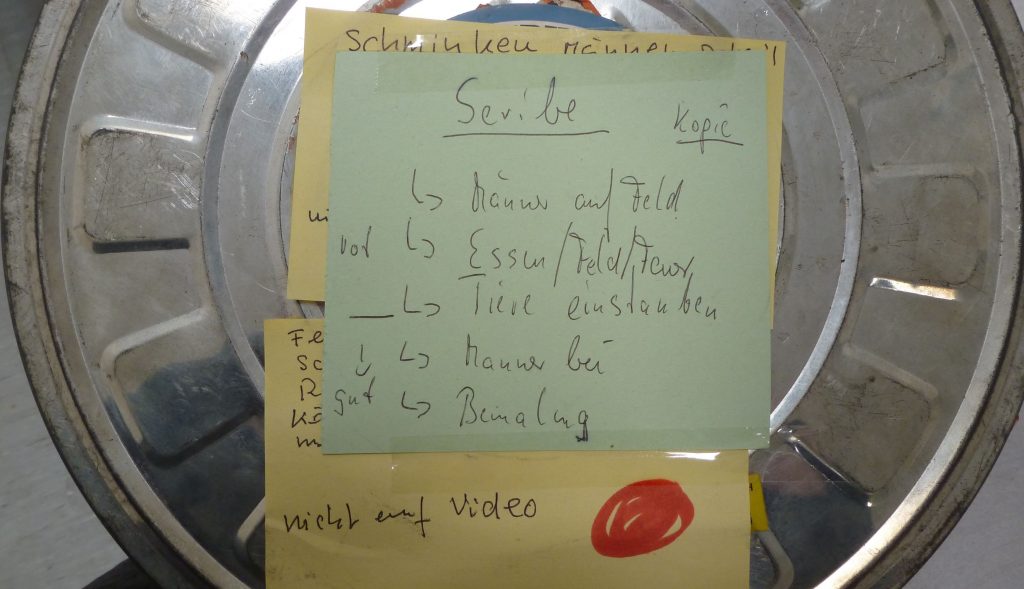 Schminken Männer Detail
Scribe
Kopie
↳ Männer auf Feld
rot ↳ Essen/Feld/Feuer
↳ Tiere einstauben
↓ ↳ Männer bei
gut ↳ Bemalung
ni
Fe
Sc
R
Kö
m
nicht auf Video